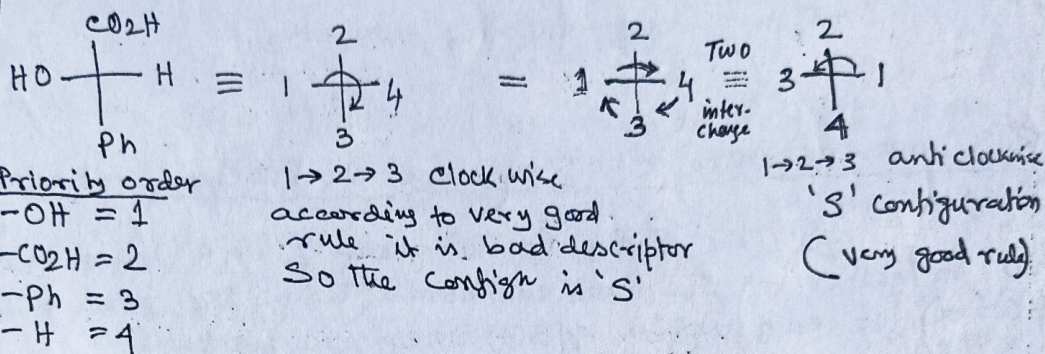 CO2H
HO H ≡ 1 2 4 3 = 1 2 4 3 Two ≡ interchange 3 2 1 4
Ph
Priority order
-OH = 1
-CO2H = 2
-Ph = 3
-H = 4
1→2→3 clockwise
according to very good
rule it is bad descriptor
So the config^n is 'S'
1→2→3 anticlockwise
'S' configuration
(very good rule)